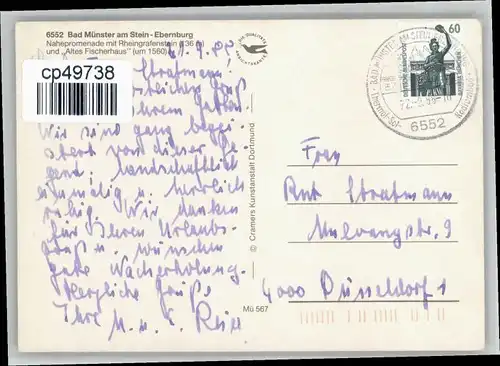 6552 Bad Münster am Stein - Ebernburg
Nahepromenade mit Rheingrafenstein (136 m)
und „Altes Fischerhaus" (um 1560)
cp49738
Frau Stratmann!
Gruß
Ihrem Gatten.
Wir sind ganz begei-
stert von dieser Ge-
gend, landschaftlich
einmalig u. herrlich
ruhig. Wir danken
für Ihren Urlaubs-
gruß u. wünschen
gute Nacherholung.
Herzliche Grüße
Ihre M. u. E. Reis
© Cramers Kunstanstalt Dortmund
Mü 567
60
DEUTSCHE BUNDESPOST
BAD MÜNSTER AM STEIN
6552
Frau
Rut Stratmann
Mulvanystr. 9
4000 Düsseldorf 1